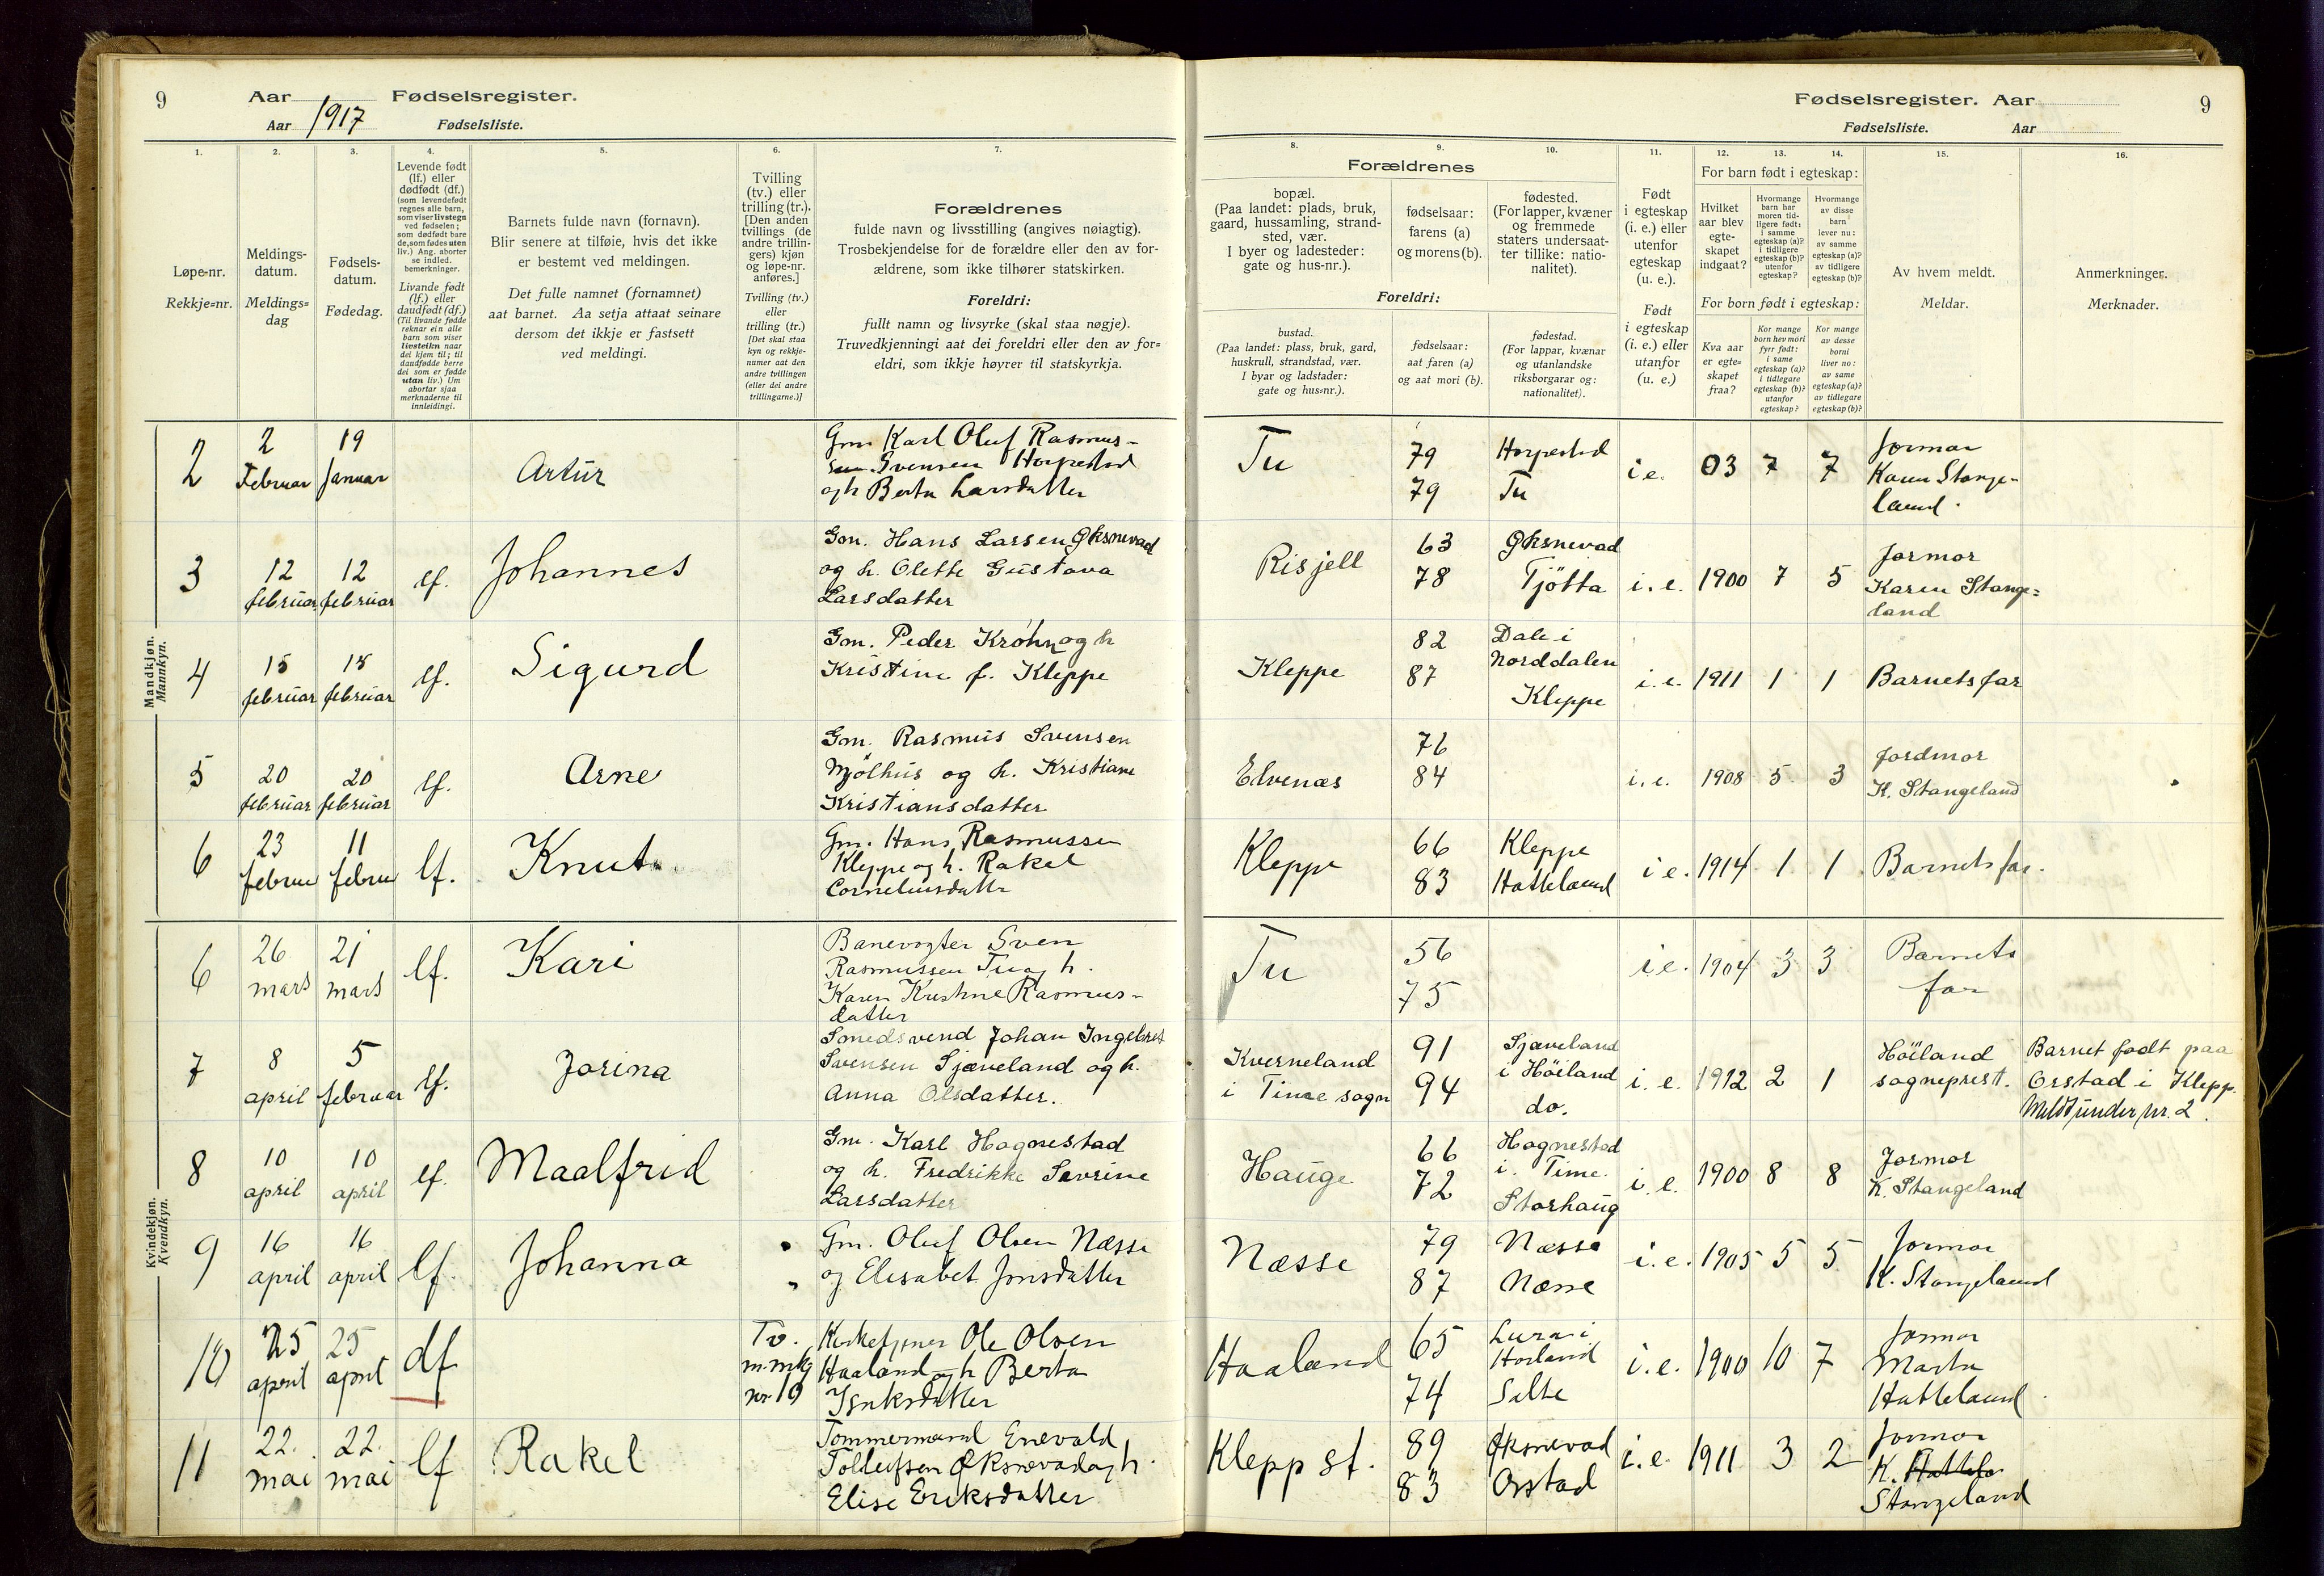 9
Aar Fødselsregister.
Aar 1917 Fødselsliste.
1.
2.
3.
4.
5.
6.
7.
Løpe-nr.
Rekkje=nr.
Meldings-
datum.
Meldings=
dag
Fødsels-
datum.
Fødedag.
Levende født
(lf.) eller
dødfødt (df.)
(som levendefødt
regnes alle barn,
som viser livstegn
ved fødselen;
som dødfødt bare
de, som fødes uten
liv.) Ang. aborter
se indled.
bemerkninger.
Livande født
(lf.) eller
daudfødt (df.)
(Til livande fødde
reknar ein alle
barn som viser
livsteikn naar
dei kjem til; til
daudfødde berre
dei som er fødde
utan liv.) Um
abortar sjaa
merknaderne til
innleidingi.
Barnets fulde navn (fornavn).
Blir senere at tilføie, hvis det ikke
er bestemt ved meldingen.
Det fulle namnet (fornamnet)
aat barnet. Aa setja attaat seinare
dersom det ikkje er fastsett
ved meldingi.
Tvilling
(tv.) eller
trilling (tr.).
[Den anden
tvillings (de
andre trillin-
gers) kjøn
og løpe-nr.
anføres.]
Tvilling (tv.)
eller
trilling (tr.)
[Det skal staa
kyn og rekkje-
numer aat den
andre tvillingen
(eller dei andre
trillingarne.)]
Forældrenes
fulde navn og livsstilling (angives nøiagtig).
Trosbekjendelse for de forældre eller den av for-
ældrene, som ikke tilhører statskirken.
Foreldri:
fullt namn og livsyrke (skal staa nøgje).
Truvedkjenningi aat dei foreldri eller den av for=
eldri, som ikkje høyrer til statskyrkja.
Fødselsregister. Aar 9
Fødselsliste. Aar
8.
9.
10.
11.
12.
13.
14.
15.
16.
Forældrenes
bopæl.
(Paa landet: plads, bruk,
gaard, hussamling, strand-
sted, vær.
I byer og ladesteder:
gate og hus-nr.).
fødselsaar:
farens (a)
og morens (b).
fødested.
(For lapper, kvæner
og fremmede
staters undersaat-
ter tillike: natio-
nalitet).
Foreldri:
bustad.
(Paa landet: plass, bruk, gard,
huskrull, strandstad, vær.
I byar og ladstader:
gate og hus=nr.).
fødselsaar:
aat faren (a)
og aat mori (b).
fødestad.
(For lappar, kvænar
og utanlandske
riksborgarar og:
nationalitet).
Født
i egteskap
(i. e.) eller
utenfor
egteskap
(u. e.).
Født
i egteskap
(i. e.) eller
utanfor
(u. e.)
For barn født i egteskap:
Hvilket
aar blev
egte-
skapet
indgaat?
Hvormange
barn har
moren tid-
ligere født:
i samme
egteskap (a)?
i tidligere
egteskap (b)?
utenfor
egteskap?
Hvormange
av disse
barn
lever nu:
av samme
egteskap (a)?
av tidligere
egteskap (b)?
For born født i egteskap:
Kva aar
er egte=
skapet
fraa?
Kor mange
born hev mori
fyrr født:
i same
egteskap (a)?
i tidlegare
egteskap (b)?
utanfor
egteskap?
Kor mange
av desse
borni
liver no:
av same
egteskap (a)?
av tidlegare
egteskap (b)?
Av hvem meldt.
Meldar.
Anmerkninger.
Merknader.
Mandkjøn.
Mannkyn.
2
2 Februar
19 Januar
Artür
Gm. Karl Oluf Rasmus-
Svensen Horpestad
og h Berta Larsdatter
Tu
79
79
Horpestad
Tu
i e.
03
7
7
Jormor
Karen Stange-
land.
3
12 februar
12 februar
lf.
Johannes
Gm. Hans Larsen Øksnevad
og h. Olette Gustava
Larsdatter
Risjell
63
78
Øksnevad
Tjötta
i. e.
1900
7
5
Jormor
Karen Stange=
land
4
15 februar
15 februar
lf.
Sigurd
Gm. Peder Krohn og h
Kristine f. Kleppe
Kleppe
82
87
Dale i
Norddalen
Kleppe
i. e.
1911
1
1
Barnets far
5
20 februar
20 februar
lf.
Arne
Gm. Rasmus Svensen
Mjølhus og h. Kristiane
Kristiansdatter
Elvenæs
76
84
i. e.
1908
5
3
Jordmor
K. Stangeland
6
23 februar
11 februar
lf.
Knut
Gm. Hans Rasmussen
Kleppe og h. Rakel
Corneliusdatter
Kleppe
66
83
Kleppe
Hatteland
i e.
1914
1
1
Barnets far.
Kvindekjøn.
Kvendkyn.
6
26 mars
21 mars
lf.
Kari
Banevogter Sven
Rasmussen Tu og h.
Karen Kristine Rasmus-
datter
Tu
56
75
i e.
1904
3
3
Barnets
far
7
8 april
5 februar
lf.
Jorina
Smedsvend Johan Ingebret
Svensen Sjæveland og h.
Anna Olsdatter.
Kverneland
i Time sogn
91
94
Sjæveland
i Höiland
do.
i. e.
1912
2
1
Höiland
sogneprest.
Barnet født paa
Orstad i Klepp.
Meldt under nr. 2.
8
10 april
10 april
lf.
Maalfrid
Gm. Karl Hognestad
og h. Fredrikke Sevrine
Larsdatter
Hauge
66
72
Hognestad
i. Time.
Storhaug
i. e.
1900
8
8
Jormor
K. Stangeland
9
16 april
16 april
lf.
Johanna
Gm. Oluf Olsen Næsse
og Elisabet Jonsdatter
Næsse
79
87
Næsse
Næsse
i. e.
1905
5
5
Jormor
K. Stangeland
10
25 april
25 april
df
Tv.
nr 19
Kirketjener Ole Olsen
Haaland og h Berta
Isaksdatter
Haaland
65
74
Lura i
Høiland
Selte
i. e.
1900
10
7
Jormor
Marta
Hatteland.
11
22. mai
22. mai
lf
Rakel
Tømmermand Enevald
Tollefsen Øksnevad og h.
Elise Eriksdatter
Klepp st.
89
83
Øksnevad
Orstad
i. e.
1911
3
2
Jormor
K.
Stangeland